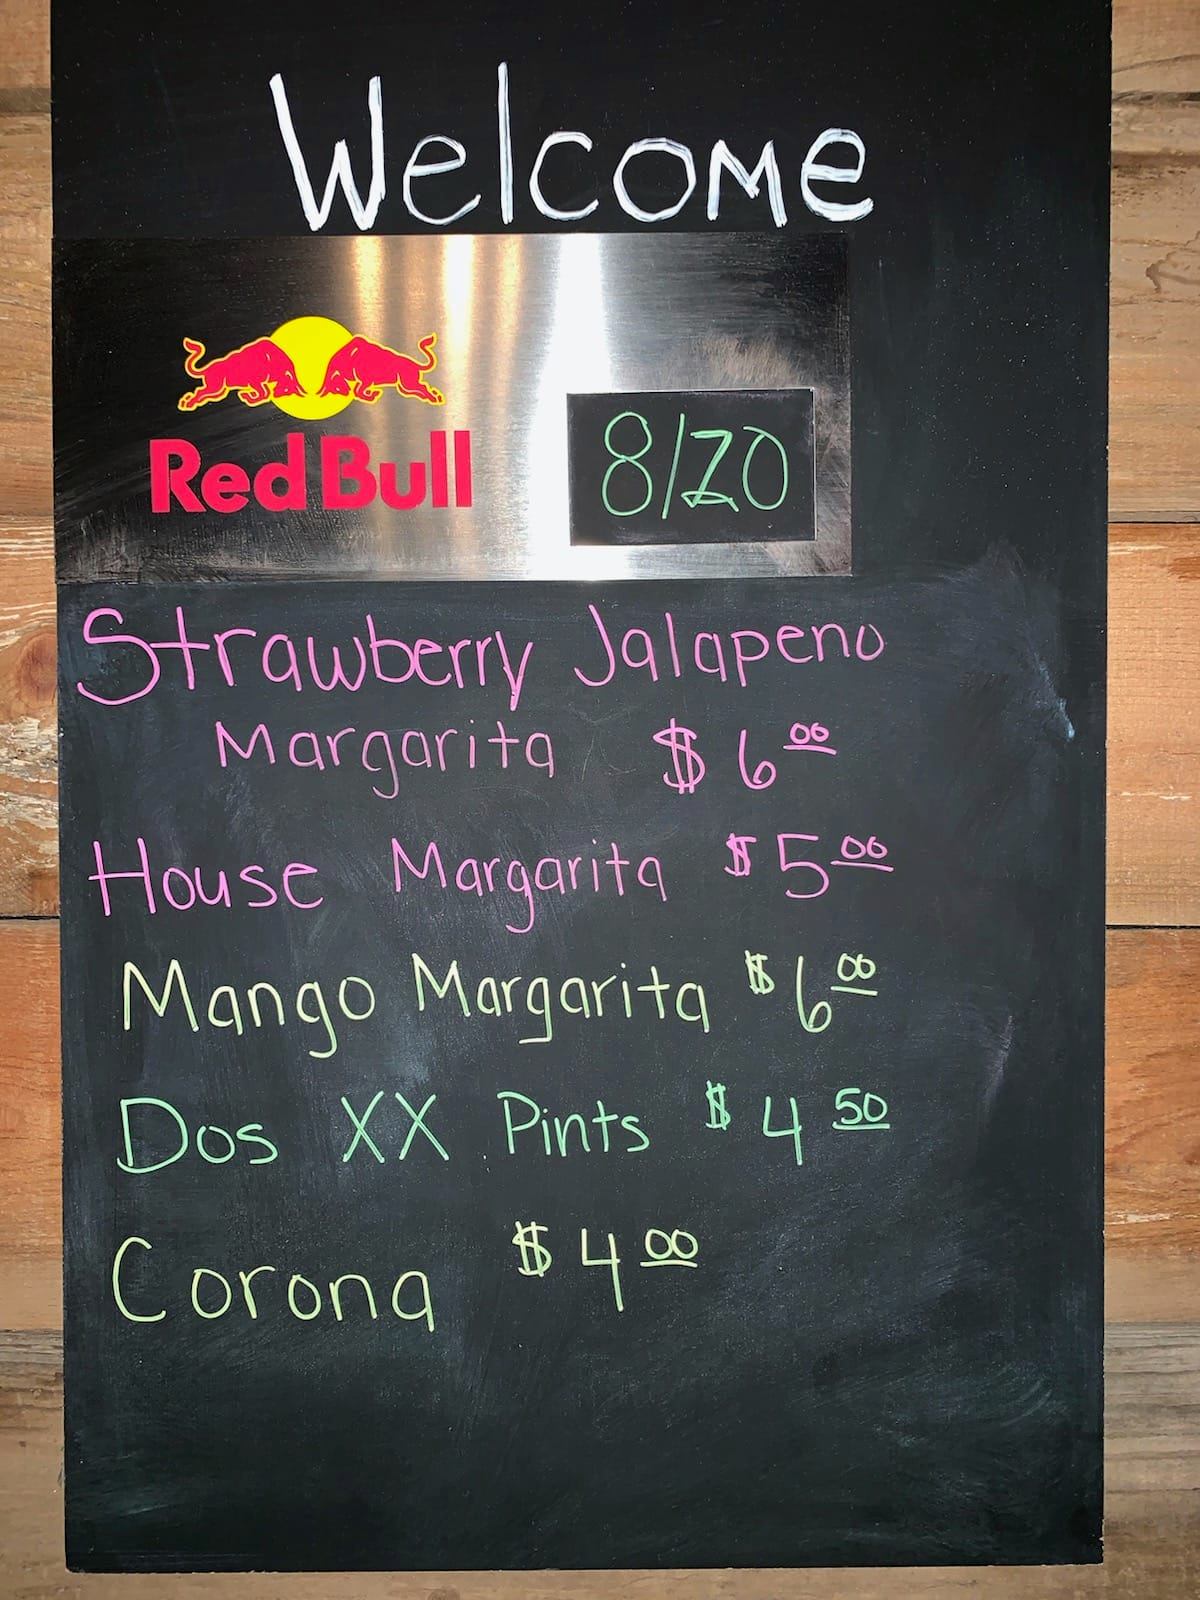 Welcome
Red Bull
8/20
Strawberry Jalapeno
Margarita $6.00
House Margarita $5.00
Mango Margarita $6.00
Dos XX Pints $4.50
Corona $4.00